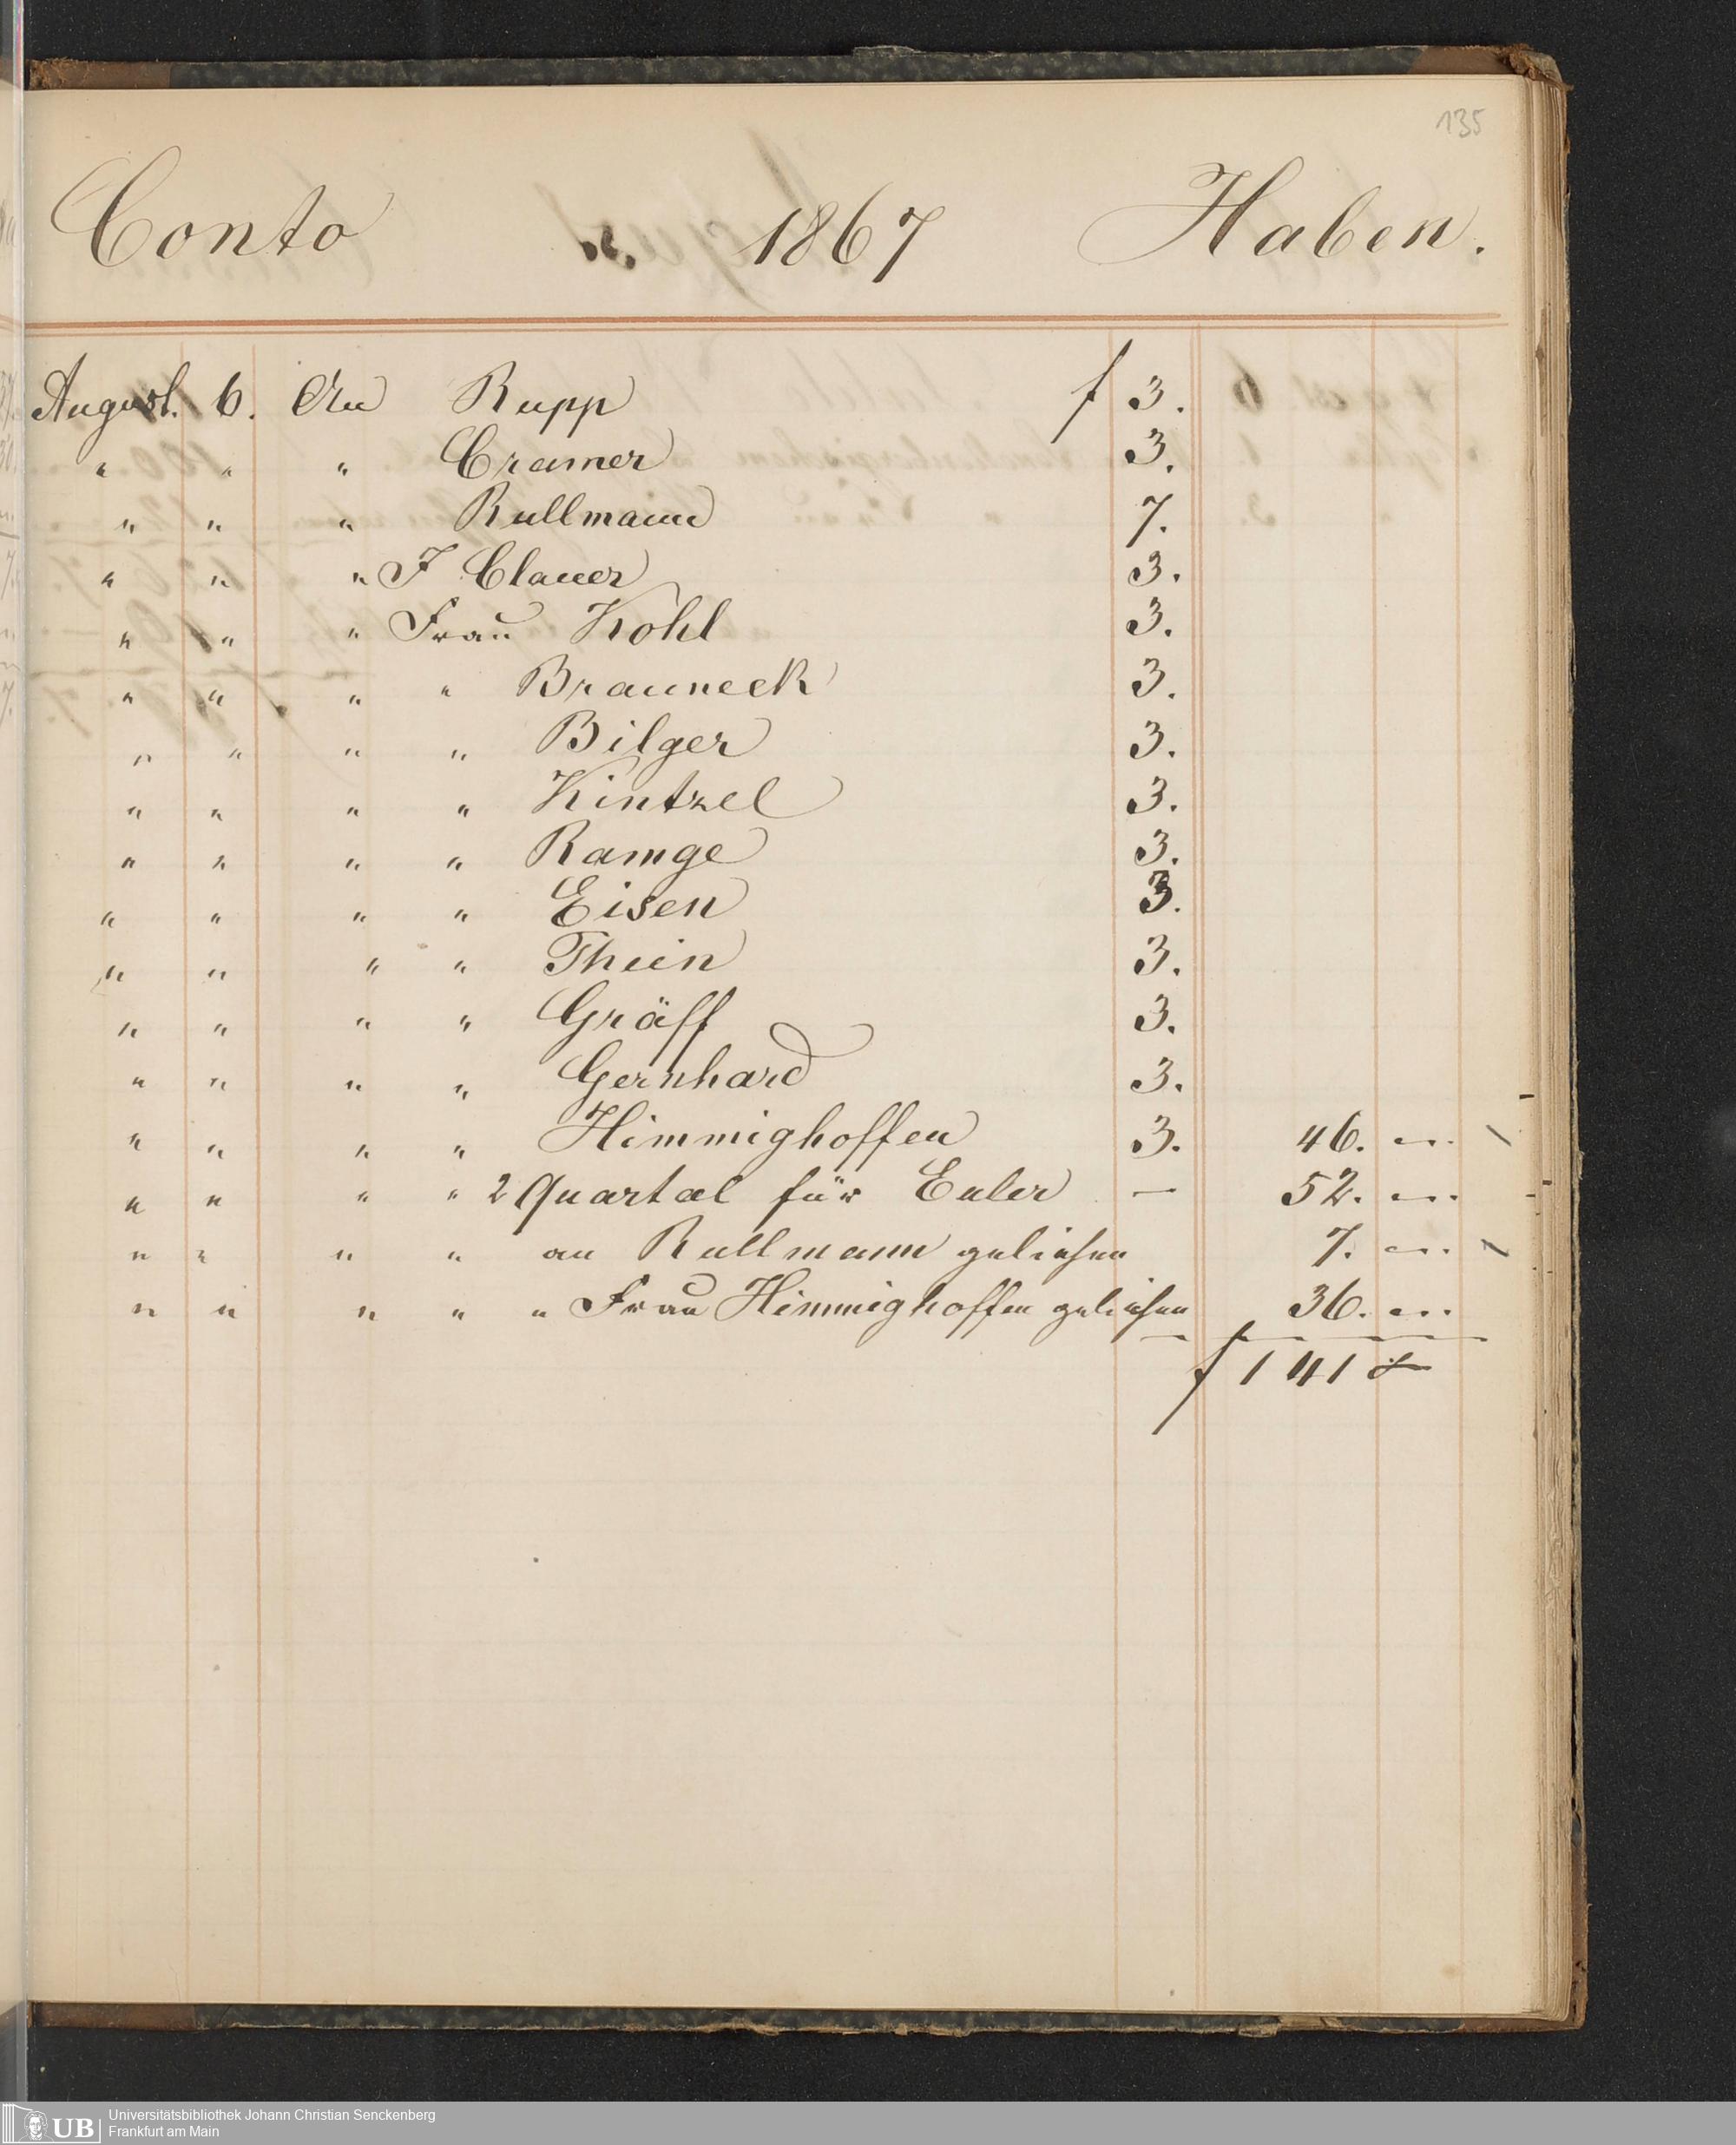 135
Conto 1867 Haben.
August. 6. An Rupp f 3.
" " " Cramer 3.
" " " Rullmann 7.
" " " J Clauer 3.
" " " Frau Kohl 3.
" " " " Brauneck 3.
" " " " Bilger 3.
" " " " Kintzel 3.
" " " " Ramge 3.
" " " " Eisen 3.
" " " " Thein 3.
" " " " Gräff 3.
" " " " Gernhard 3.
" " " " Himmighoffen 3. 46. "
" " " " 2 Quartal für Euler — 52. "
" " " " an Rullmann geliehen 7. "
" " " " " Frau Himmighoffen geliehen 36. "
f 141
UB Universitätsbibliothek Johann Christian Senckenberg
Frankfurt am Main